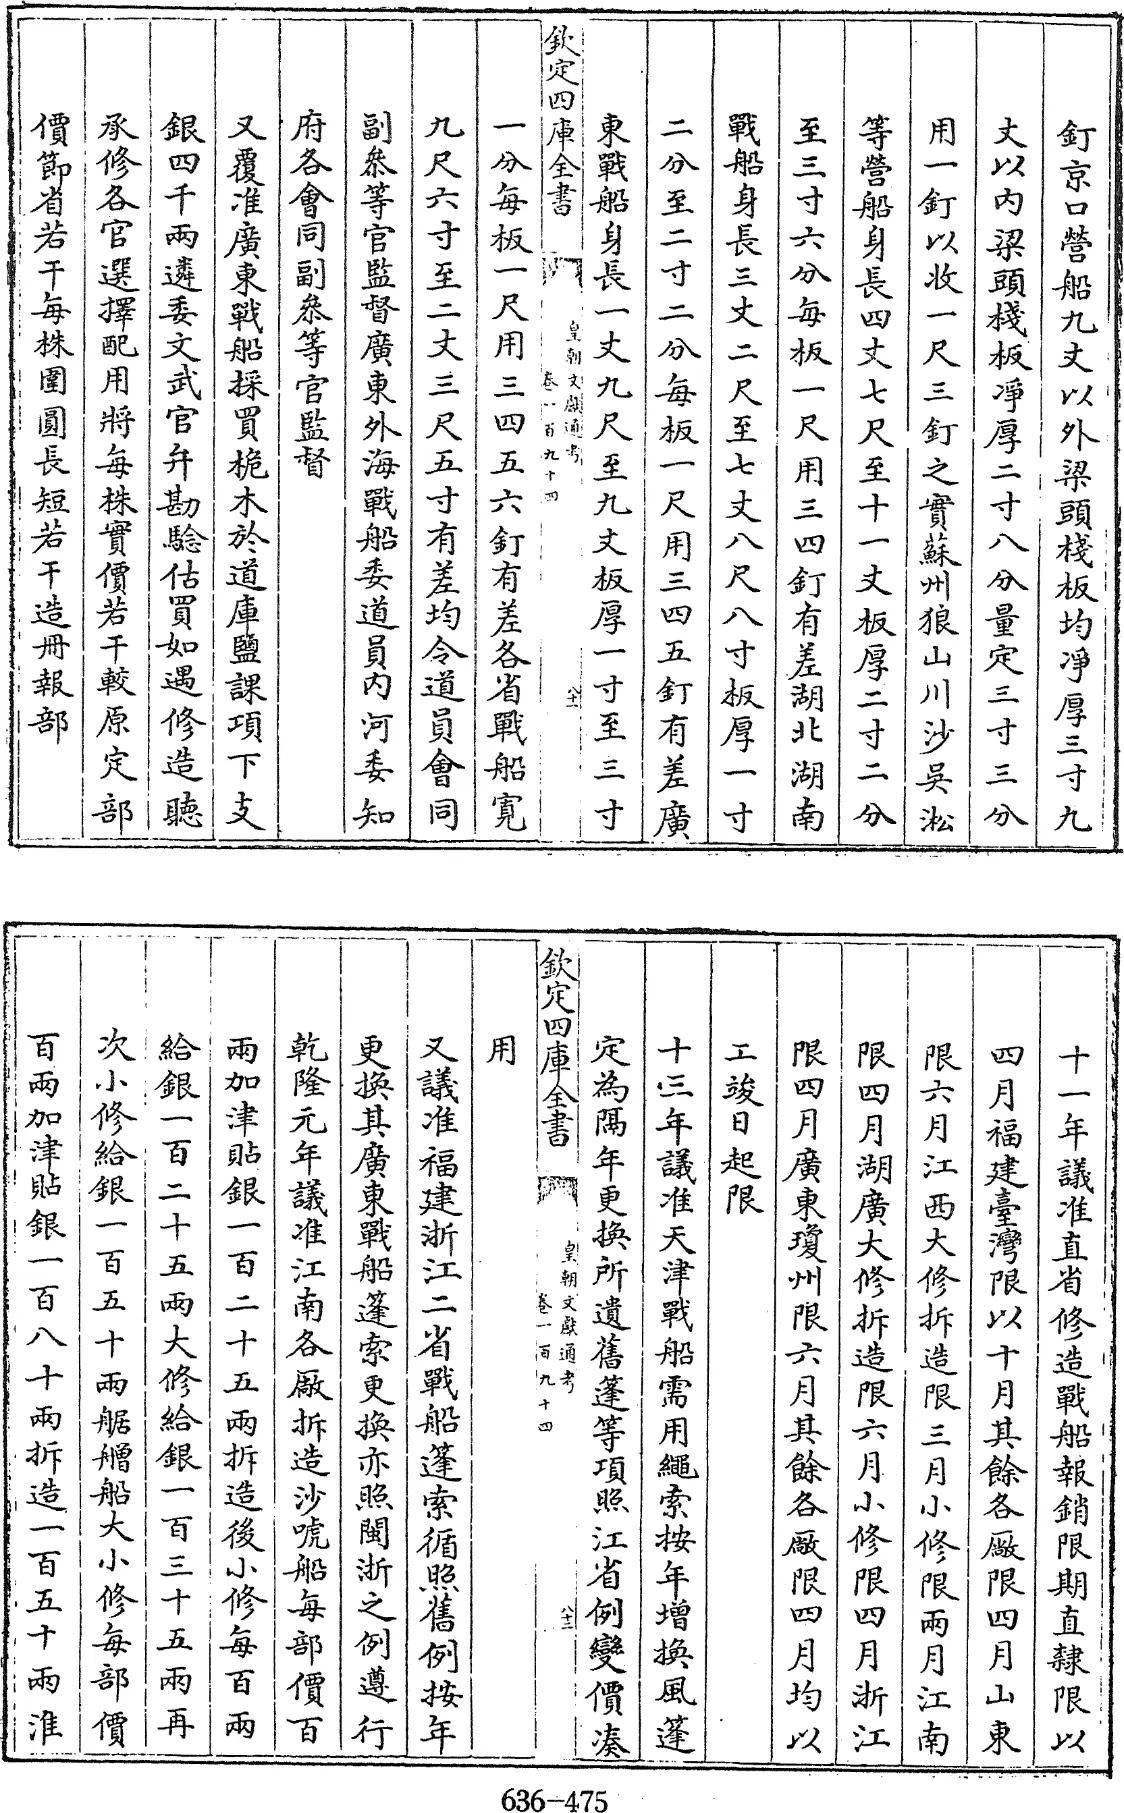 釘京口營船九丈以外梁頭棧板均凈厚三寸九
丈以内梁頭棧板凈厚二寸八分量定三寸三分
用一釘以收一尺三釘之實蘇州狼山川沙吳淞
等營船身長四丈七尺至十一丈板厚二寸二分
至三寸六分每板一尺用三四釘有差湖北湖南
戰船身長三丈二尺至七丈八尺八寸板厚一寸
二分至二寸二分每板一尺用三四五釘有差廣
東戰船身長一丈九尺至九丈板厚一寸至三寸
欽定四庫全書
皇朝文獻通考
卷一百九十四
一分每板一尺用三四五六釘有差各省戰船寛
九尺六寸至二丈三尺五寸有差均令道員會同
副叅等官監督廣東外海戰船委道員内河委知
府各會同副叅等官監督
又覆准廣東戰船採買桅木於道庫鹽課項下支
銀四千兩遴委文武官弁勘驗估買如遇修造聽
承修各官選擇配用將每株實價若干較原定部
價節省若干每株圍圓長短若干造冊報部
十一年議准直省修造戰船報銷限期直隸限以
四月福建臺灣限以十月其餘各廠限四月山東
限六月江西大修拆造限三月小修限兩月江南
限四月湖廣大修拆造限六月小修限四月浙江
限四月廣東瓊州限六月其餘各廠限四月均以
工竣日起限
十三年議准天津戰船需用繩索按年增換風蓬
定為隔年更換所遺舊蓬等項照江省例變價湊
欽定四庫全書
皇朝文獻通考
卷一百九十四
八十三
用
又議准福建浙江二省戰船蓬索循照舊例按年
更換其廣東戰船蓬索更換亦照閩浙之例遵行
乾隆元年議准江南各廠拆造沙唬船每部價百
兩加津貼銀一百二十五兩拆造後小修每百兩
給銀一百二十五兩大修給銀一百三十五兩再
次小修給銀一百五十兩艍艚船大小修每部價
百兩加津貼銀一百八十兩拆造一百五十兩淮
636-475